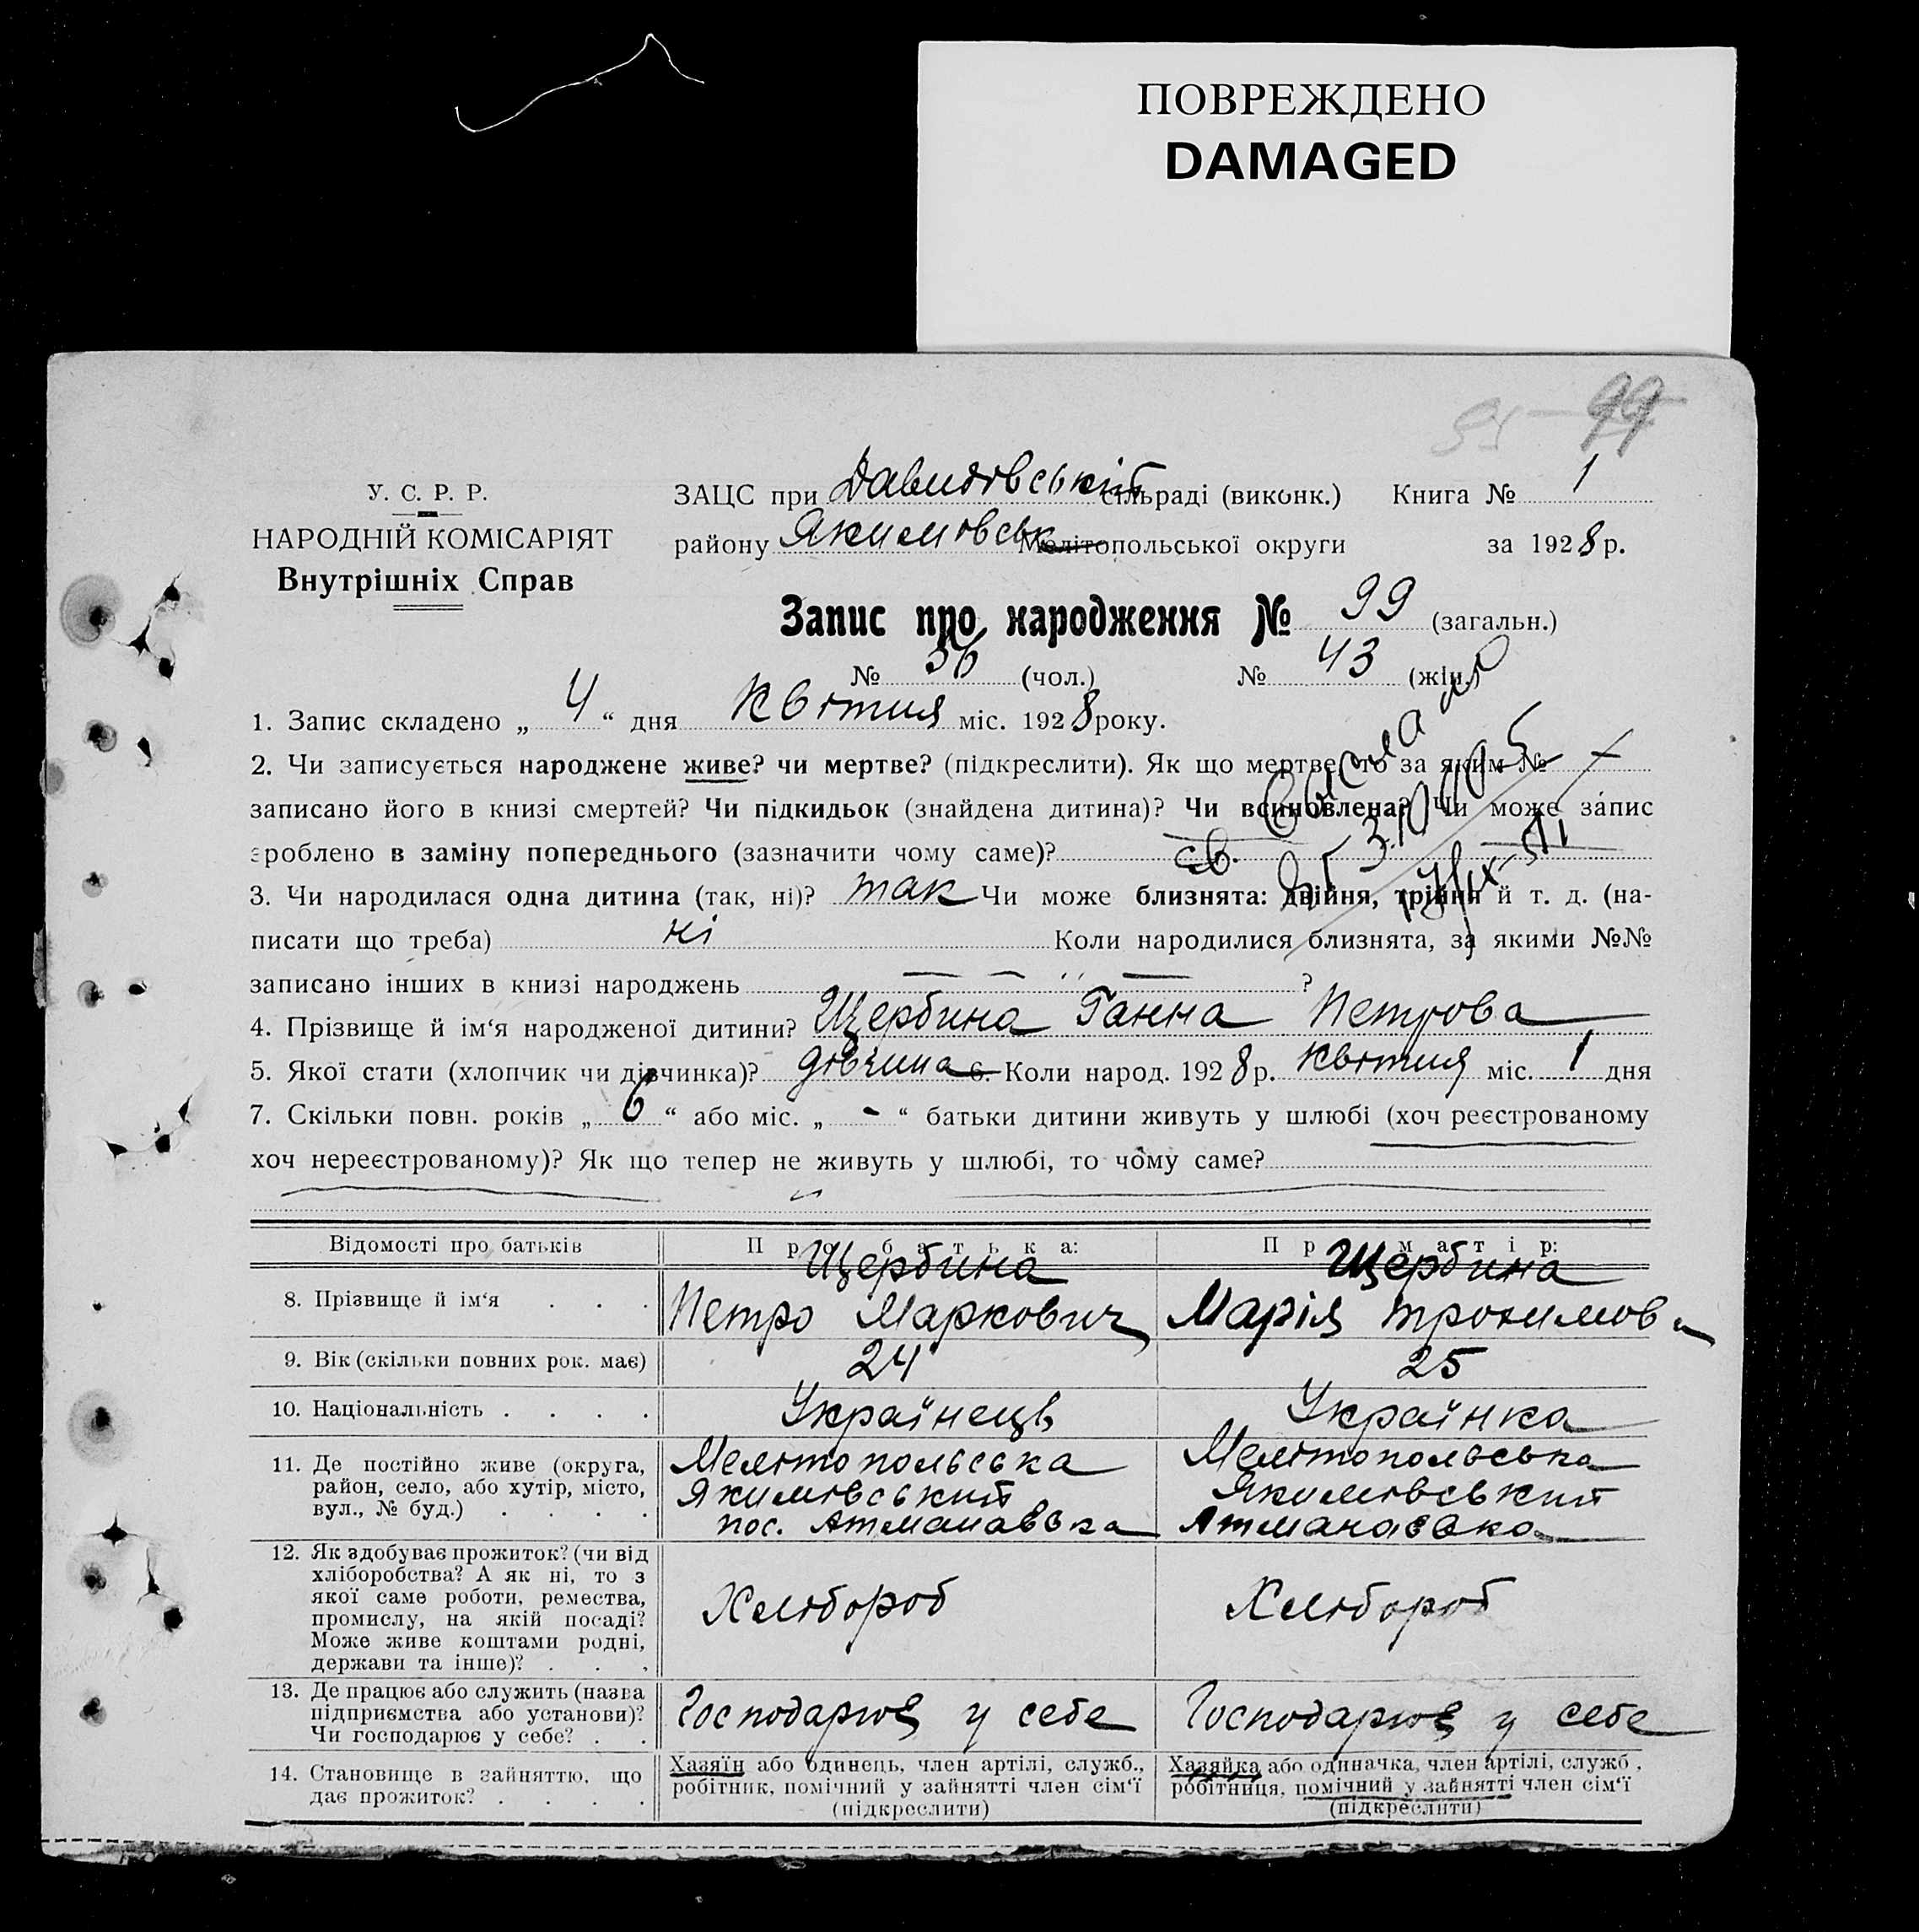 ПОВРЕЖДЕНО
DAMAGED
99
У. С. Р. Р.
НАРОДНІЙ КОМІСАРІЯТ
Внутрішніх Справ
ЗАЦС при Давидовській сільраді (виконк.) Книга № 1
району Якимовськ Мелітопольської округи за 1928 р.
Запис про народження № 99 (загальн.)
№ 56 (чол.) № 43 (жін.)
1. Запис складено „ 4 “ дня Квітня міс. 1928 року.
2. Чи записується народжене живе? чи мертве? (підкреслити). Як що мертве, то за яким №
записано його в книзі смертей? Чи підкидьок (знайдена дитина)? Чи всиновлена? Чи може запис
зроблено в заміну попереднього (зазначити чому саме)?
3. Чи народилася одна дитина (так, ні)? так Чи може близнята: двійня, трійня й т. д. (на-
писати що треба) ні Коли народилися близнята, за якими №№
записано інших в книзі народжень ?
4. Прізвище й ім‘я народженої дитини? Щербина Ганна Петрова
5. Якої стати (хлопчик чи дівчинка)? дівчина 6. Коли народ. 1928 р. Квітня міс. 1 дня
7. Скільки повн. років „ 6 “ або міс. „ - “ батьки дитини живуть у шлюбі (хоч реєстрованому
хоч нереєстрованому)? Як що тепер не живуть у шлюбі, то чому саме?
Відомості про батьків Про батька: Про матір:
8. Прізвище й ім‘я . . . Щербина Петро Маркович Щербина Марія Трохимова
9. Вік (скільки повних рок. має) 24 25
10. Національність . . . . Українець Українка
11. Де постійно живе (округа,
район, село, або хутір, місто,
вул., № буд.) . . . .
Мелітопольська
Якимівський
пос. Атманавська
Мелітопольська
Якимівський
Атманаєвка
12. Як здобуває прожиток? (чи від
хліборобства? А як ні, то з
якої саме роботи, ремества,
промислу, на якій посаді?
Може живе коштами родні,
держави та інше)? . . .
Хлібороб
Хлібороб
13. Де працює або служить (назва
підприємства або установи)?
Чи господарює у себе? . .
Господарює у себе
Господарює у себе
14. Становище в зайняттю, що
дає прожиток? . . . .
Хазяїн або одинець, член артілі, служб.,
робітник, помічний у зайнятті член сім‘ї
(підкреслити)
Хазяйка або одиначка, член артілі, служб.,
робітниця, помічний у зайнятті член сім‘ї
(підкреслити)